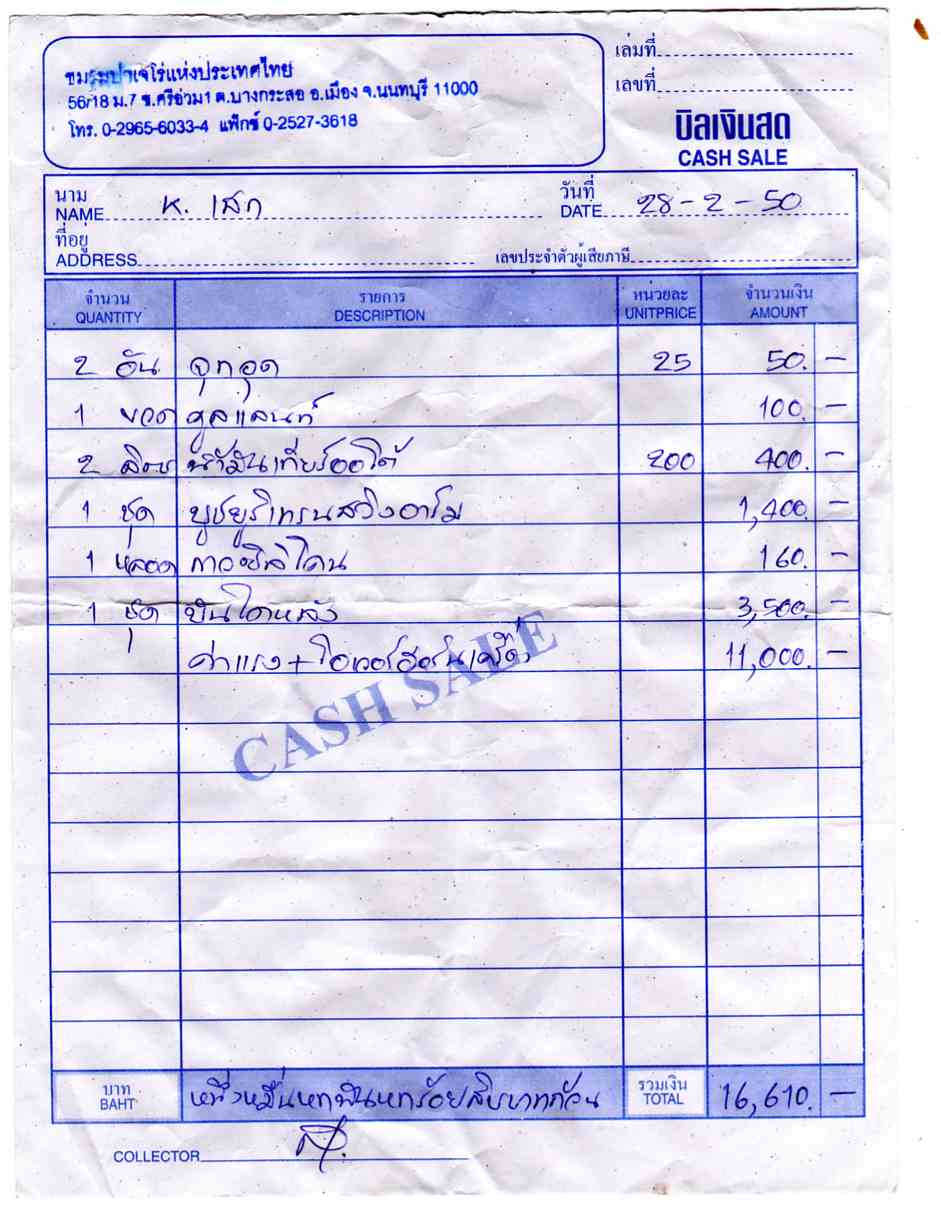 ชมรมปาเจโร่แห่งประเทศไทย
56/18 ม.7 ซ.ศรีร่วม1 ต.บางกระสอ อ.เมือง จ.นนทบุรี 11000
โทร. 0-2965-6033-4 แฟ็กซ์ 0-2527-3618
เล่มที่
เลขที่
บิลเงินสด
CASH SALE
นาม
NAME K. เสก
วันที่
DATE 28-2-50
ที่อยู่
ADDRESS
เลขประจำตัวผู้เสียภาษี
จำนวน รายการ หน่วยละ จำนวนเงิน
QUANTITY DESCRIPTION UNITPRICE AMOUNT
2 อัน จุกอุด 25 50.-
1 ขวด คูลแลนท์ 100.-
2 ลิตร น้ำมันเกียร์ออโต้ 200 400.-
1 ชุด บูชยูริเทรนสวิงอาร์ม 1,400.-
1 หลอด กาวซิลิโคน 160.-
1 ชุด บันไดหลัง 3,500.-
ค่าแรง + โอเวอร์ฮอร์น 11,000.-
CASH SALE
บาท
BAHT หนึ่งหมื่นหกพันหกร้อยสิบบาทถ้วน
รวมเงิน
TOTAL 16,610.-
COLLECTOR